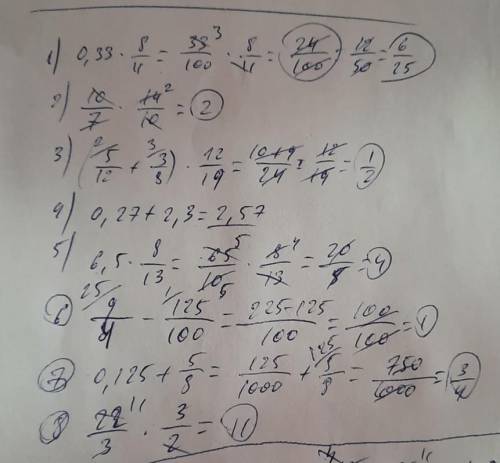 1) 0,33 · 8/11 = 33³/100 · 8/11 = 24/100 = 12/50 = 6/25
2) 10/7 · 14²/10 = 2
3) (²⁄5/12 + ³⁄3/8) · 12/19 = 10+9/24 · 12/19 = 1/2
4) 0,27 + 2,3 = 2,57
5) 6,5 · 8/13 = 65⁵/10₅ · 8⁴/13 = 20/5 = 4
6 ²⁵⁄9/4 - ¹⁄125/100 = 225-125/100 = 100/100 = 1
7 0,125 + 5/8 = 125/1000 + ¹²⁵⁄5/8 = 750/1000 = 3/4
8 22¹¹/3 · 3/2 = 11